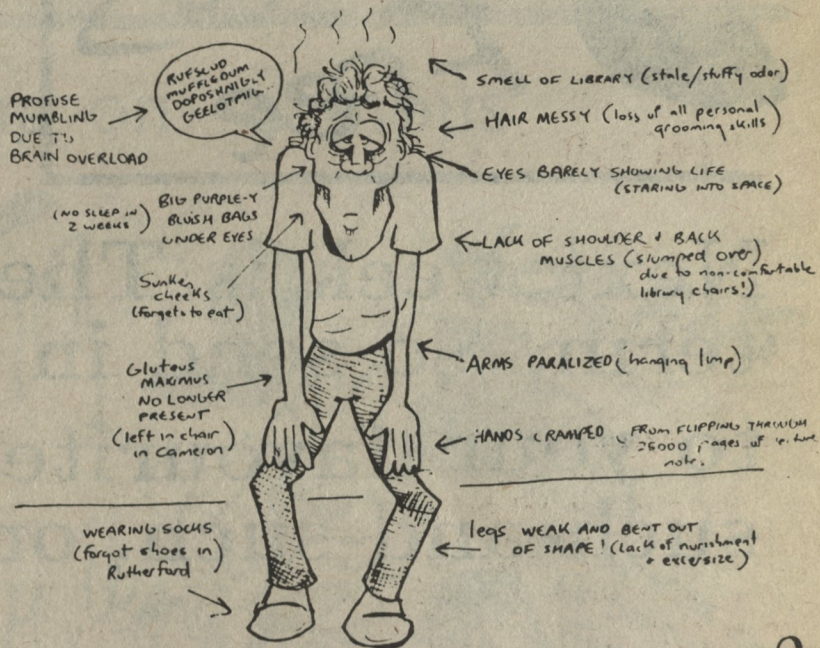 PROFUSE
MUMBLING
DUE TO
BRAIN OVERLOAD
RUFSLUD
MUFFLEDUM
DOPOSHNIGLY
GEELOTMIG...
SMELL OF LIBRARY (stale/stuffy odor)
HAIR MESSY (loss of all personal
grooming skills)
EYES BARELY SHOWING LIFE
(STARING INTO SPACE)
(NO SLEEP IN
2 WEEKS)
BIG PURPLE-Y
BLUISH BAGS
UNDER EYES
LACK OF SHOULDER + BACK
MUSCLES (slumped over)
due to non-comfortable
library chairs!)
Sunken
cheeks
(forgets to eat)
Gluteus
MAXIMUS
NO LONGER
PRESENT
(left in chair
in Cameron)
ARMS PARALIZED (hanging limp)
HANDS CRAMPED (FROM FLIPPING THROUGH
25000 pages of
note.
WEARING SOCKS
(forgot shoes in
Rutherford)
legs WEAK AND BENT OUT
OF SHAPE! (Lack of nurishment
+ excersize)